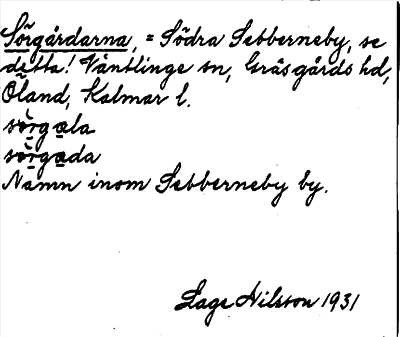 Sörgårdarna, = Södra Sebberneby, se
detta! Ventlinge sn, Gräsgårds hd,
Öland, Kalmar l.
sö̀rgạla
sö̀rgạda
Namn inom Sebberneby by.
Lage Nilsson 1931